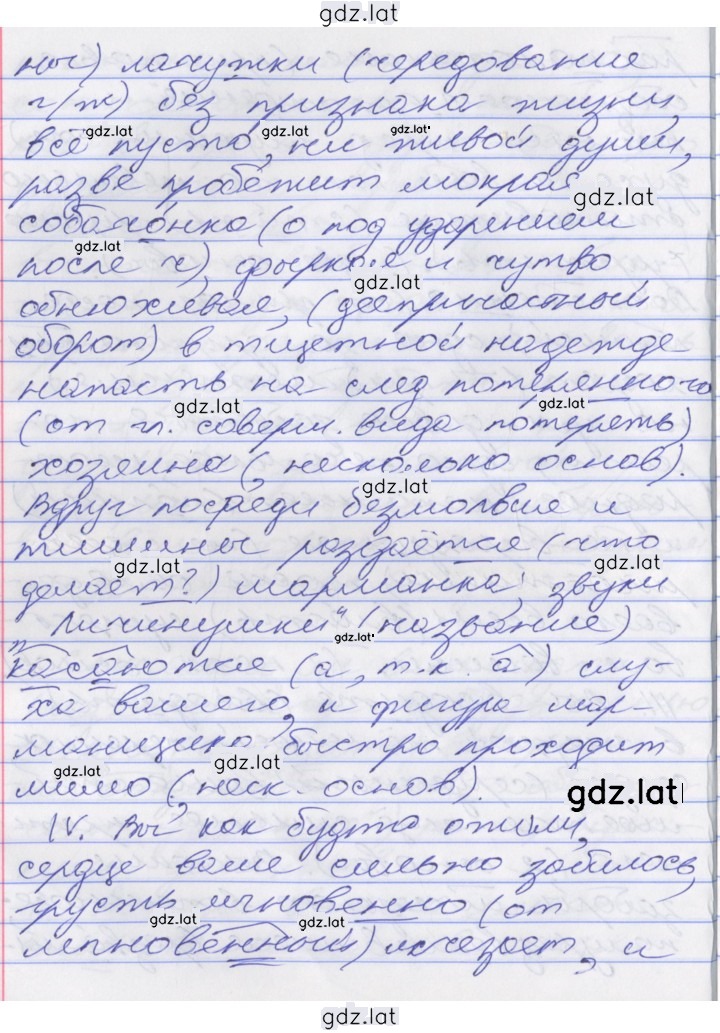 gdz.lat
ны) лачужки (чередование
г/ж) без признака жизни,
всё пусто, ни живой души,
gdz.lat gdz.lat gdz.lat
разве пробежит мокрая
gdz.lat
собачонка (о под ударением
gdz.lat
после ч), фыркая и чутко
gdz.lat
обнюхивая, (деепричастный
оборот) в тщетной надежде
напасть на след потерянного
gdz.lat gdz.lat
(от г. соверш. вида потерять)
хозяина (, несколько основ).
gdz.lat
Вдруг посреди безмолвия и
тишины раздаётся (что
gdz.lat gdz.lat
делает?) шарманка; звуки
„Лучинушки" (название)
gdz.lat
касаются (а, т.к. а) слу-
ха вашего, и фигура шар-
манщика быстро проходит
gdz.lat gdz.lat
мимо (, неск. основ).
gdz.lat
IV. Вы как будто ожили,
сердце ваше сильно забилось,
грусть мгновенно (от
gdz.lat gdz.lat
мгновенный) исчезает, и
gdz.lat